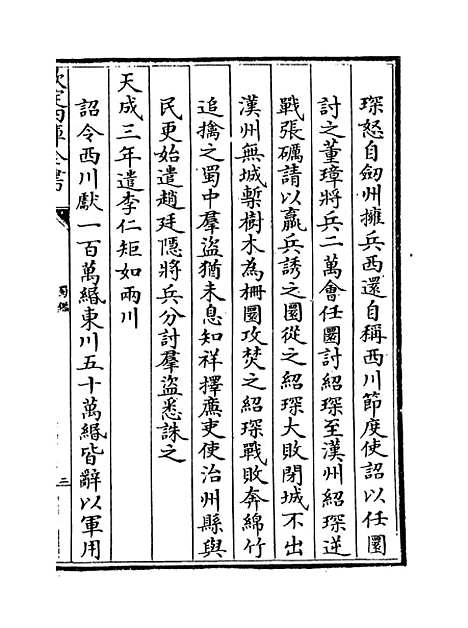 琛怒自劒州擁兵西還自稱西川節度使詔以任圜
討之董璋將兵二萬會任圜討紹琛至漢州紹琛逆
戰張礪請以羸兵誘之圜從之紹琛大敗閉城不出
漢州無城塹樹木為柵圜攻焚之紹琛戰敗奔綿竹
追擒之蜀中羣盜猶未息知祥擇廉吏使治州縣與
民更始遣趙廷隱將兵分討羣盜悉誅之
天成三年遣李仁矩如兩川
詔令西川獻一百萬緡東川五十萬緡皆辭以軍用
欽定四庫全書
蜀鑑
三